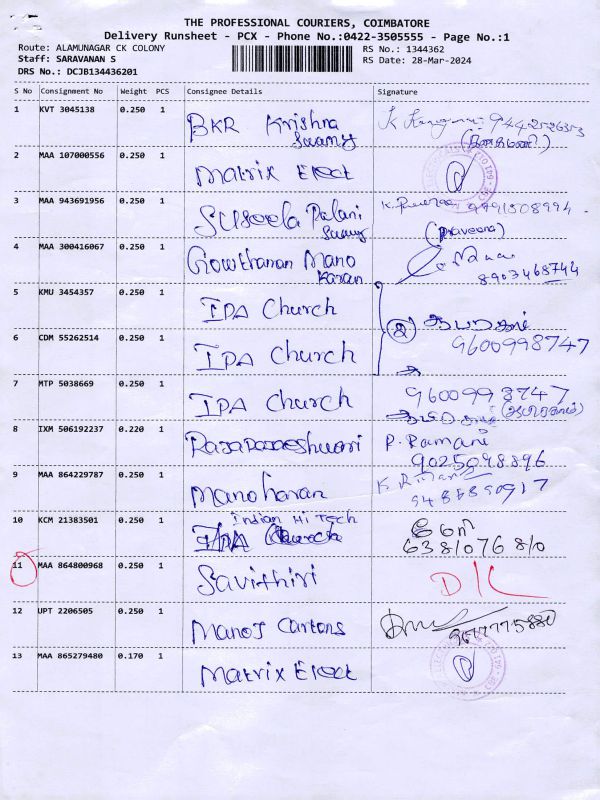 THE PROFESSIONAL COURIERS, COIMBATORE
Delivery Runsheet - PCX - Phone No.:0422-3505555 - Page No.:1
Route: ALAMUNAGAR CK COLONY RS No.: 1344362
Staff: SARAVANAN S RS Date: 28-Mar-2024
DRS No.: DCJB134436201
S No Consignment No Weight PCS Consignee Details Signature
1 KVT 3045138 0.250 1 BKR Krishna
Swamy
2 MAA 107000556 0.250 1 Matrix Elect
3 MAA 943691956 0.250 1 Suseela Palani
Swamy (Praveena)
4 MAA 300416067 0.250 1 Gowthaman Mano
Karan 8903468744
5 KMU 3454357 0.250 1 IPA Church
6 CDM 55262514 0.250 1 IPA Church 9600998747
7 MTP 5038669 0.250 1 IPA Church 9600998747
8 IXM 506192237 0.220 1 Rajarajeshwari P. Ramani
9025098896
9 MAA 864229787 0.250 1 Manoharan
10 KCM 21383501 0.250 1 Indian Hi Tech
6381076810
11 MAA 864800968 0.250 1 Savithiri DL
12 UPT 2206505 0.250 1 Manoj Cartons
13 MAA 865279480 0.170 1 Matrix Elect